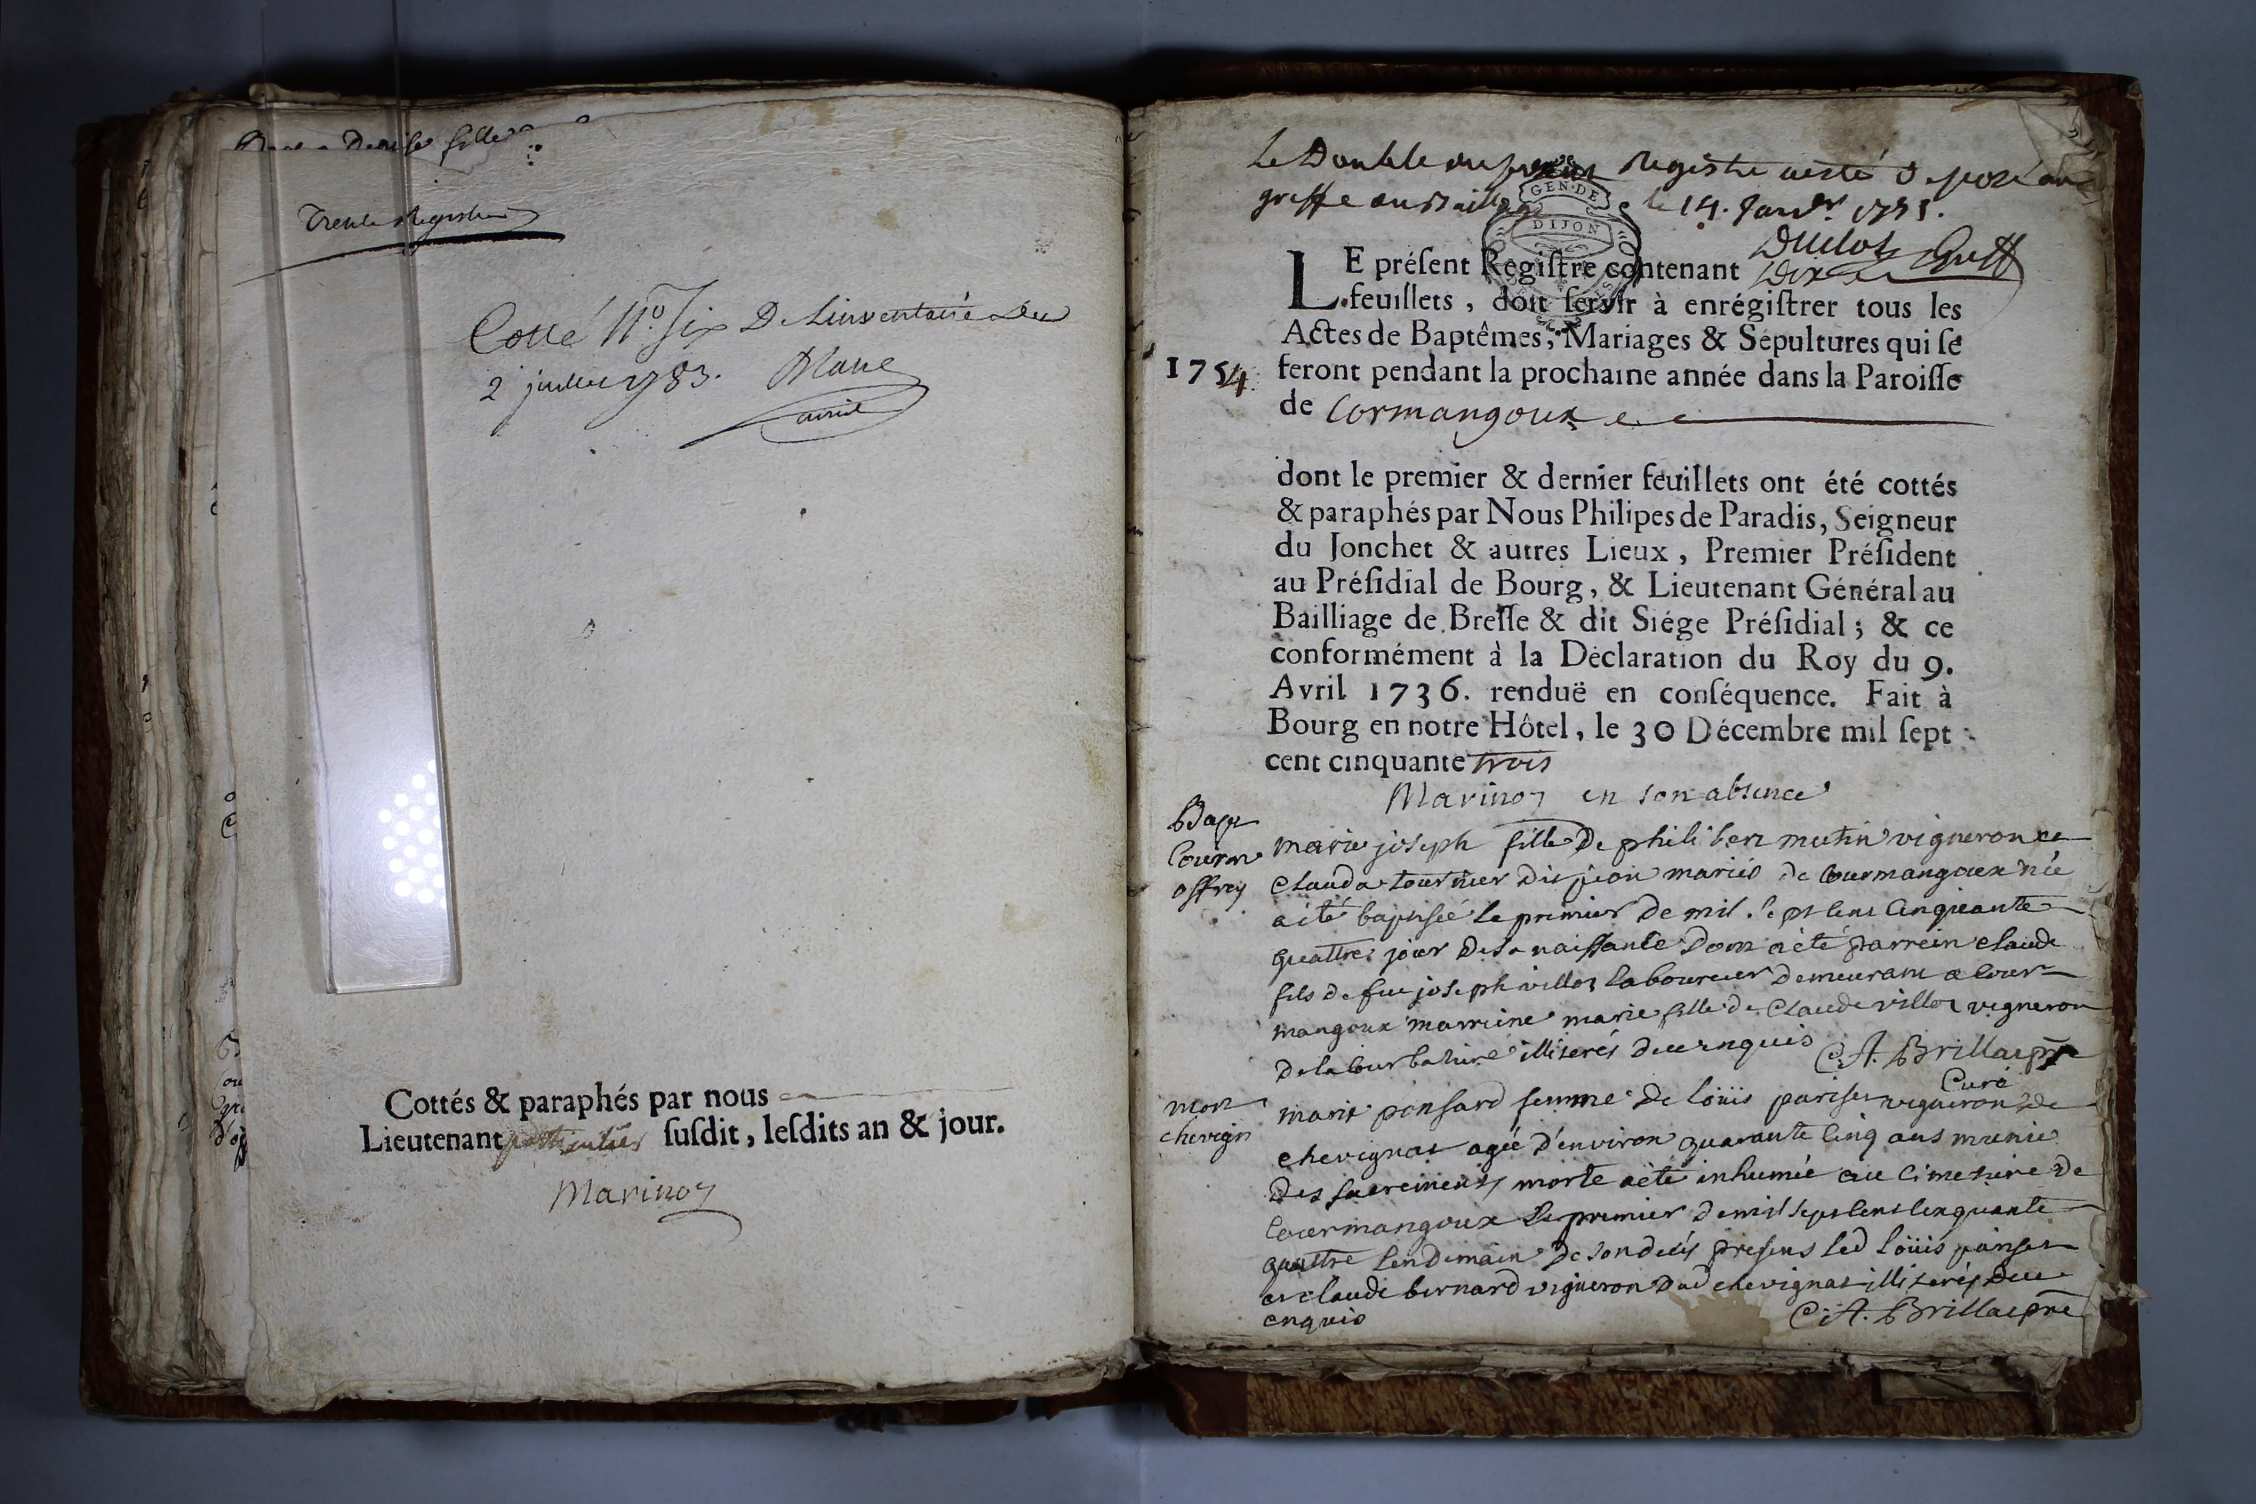 trente Registres
Cotté N.º Six De Linventaire Du
2 juillet 1783.
Cottés & paraphés par nous
Lieutenant particulier susdit, lesdits an & jour.
Marinon
Le Double du present Registre a esté déposé au
greffe du Bailliage le 14. Janvr. 1755.
GEN. DE
DIJON
Duclot Greff
LE présent Registre contenant Dix
feuillets, doit servir à enrégistrer tous les
Actes de Baptêmes, Mariages & Sépultures qui se
1754 feront pendant la prochaine année dans la Paroisse
de Cormangoux
dont le premier & dernier feuillets ont été cottés
& paraphés par Nous Philipes de Paradis, Seigneur
du Jonchet & autres Lieux, Premier Président
au Présidial de Bourg, & Lieutenant Général au
Bailliage de Bresse & dit Siége Présidial; & ce
conformément à la Déclaration du Roy du 9.
Avril 1736. renduë en conséquence. Fait à
Bourg en notre Hôtel, le 30 Décembre mil sept
cent cinquante trois
Marinon en son absence
Bapt
Courm
offrey
marie joseph fille De philibert mutin vigneron et
Clauda tournier Dit pion mariés de Courmangoux née
a été baptisée le premier De mil sept cent Cinquante
quattre jour De sa naissance Dont a été parrein claude
fils de feu joseph villot laboureur Demeurant a Cour
mangoux marreine marie fille de Claude villot vigneron
De la Courbatiere illiterés deue enquis C. A. Brillat ptre
Curé
mort
chevign
marie ponsard femme De Loüis pariset vigneron de
chevignat agée d'environ quarante Cinq ans munie
Des sacremens morte a été inhumée au Cimetiere De
Courmangoux le premier de mil sept Cent Cinquante
quattre lendemain De son decés presens led Loüis pariset
et claude bernard vigneron dud chevignat illiterés deue
enquis C. A. Brillat ptre